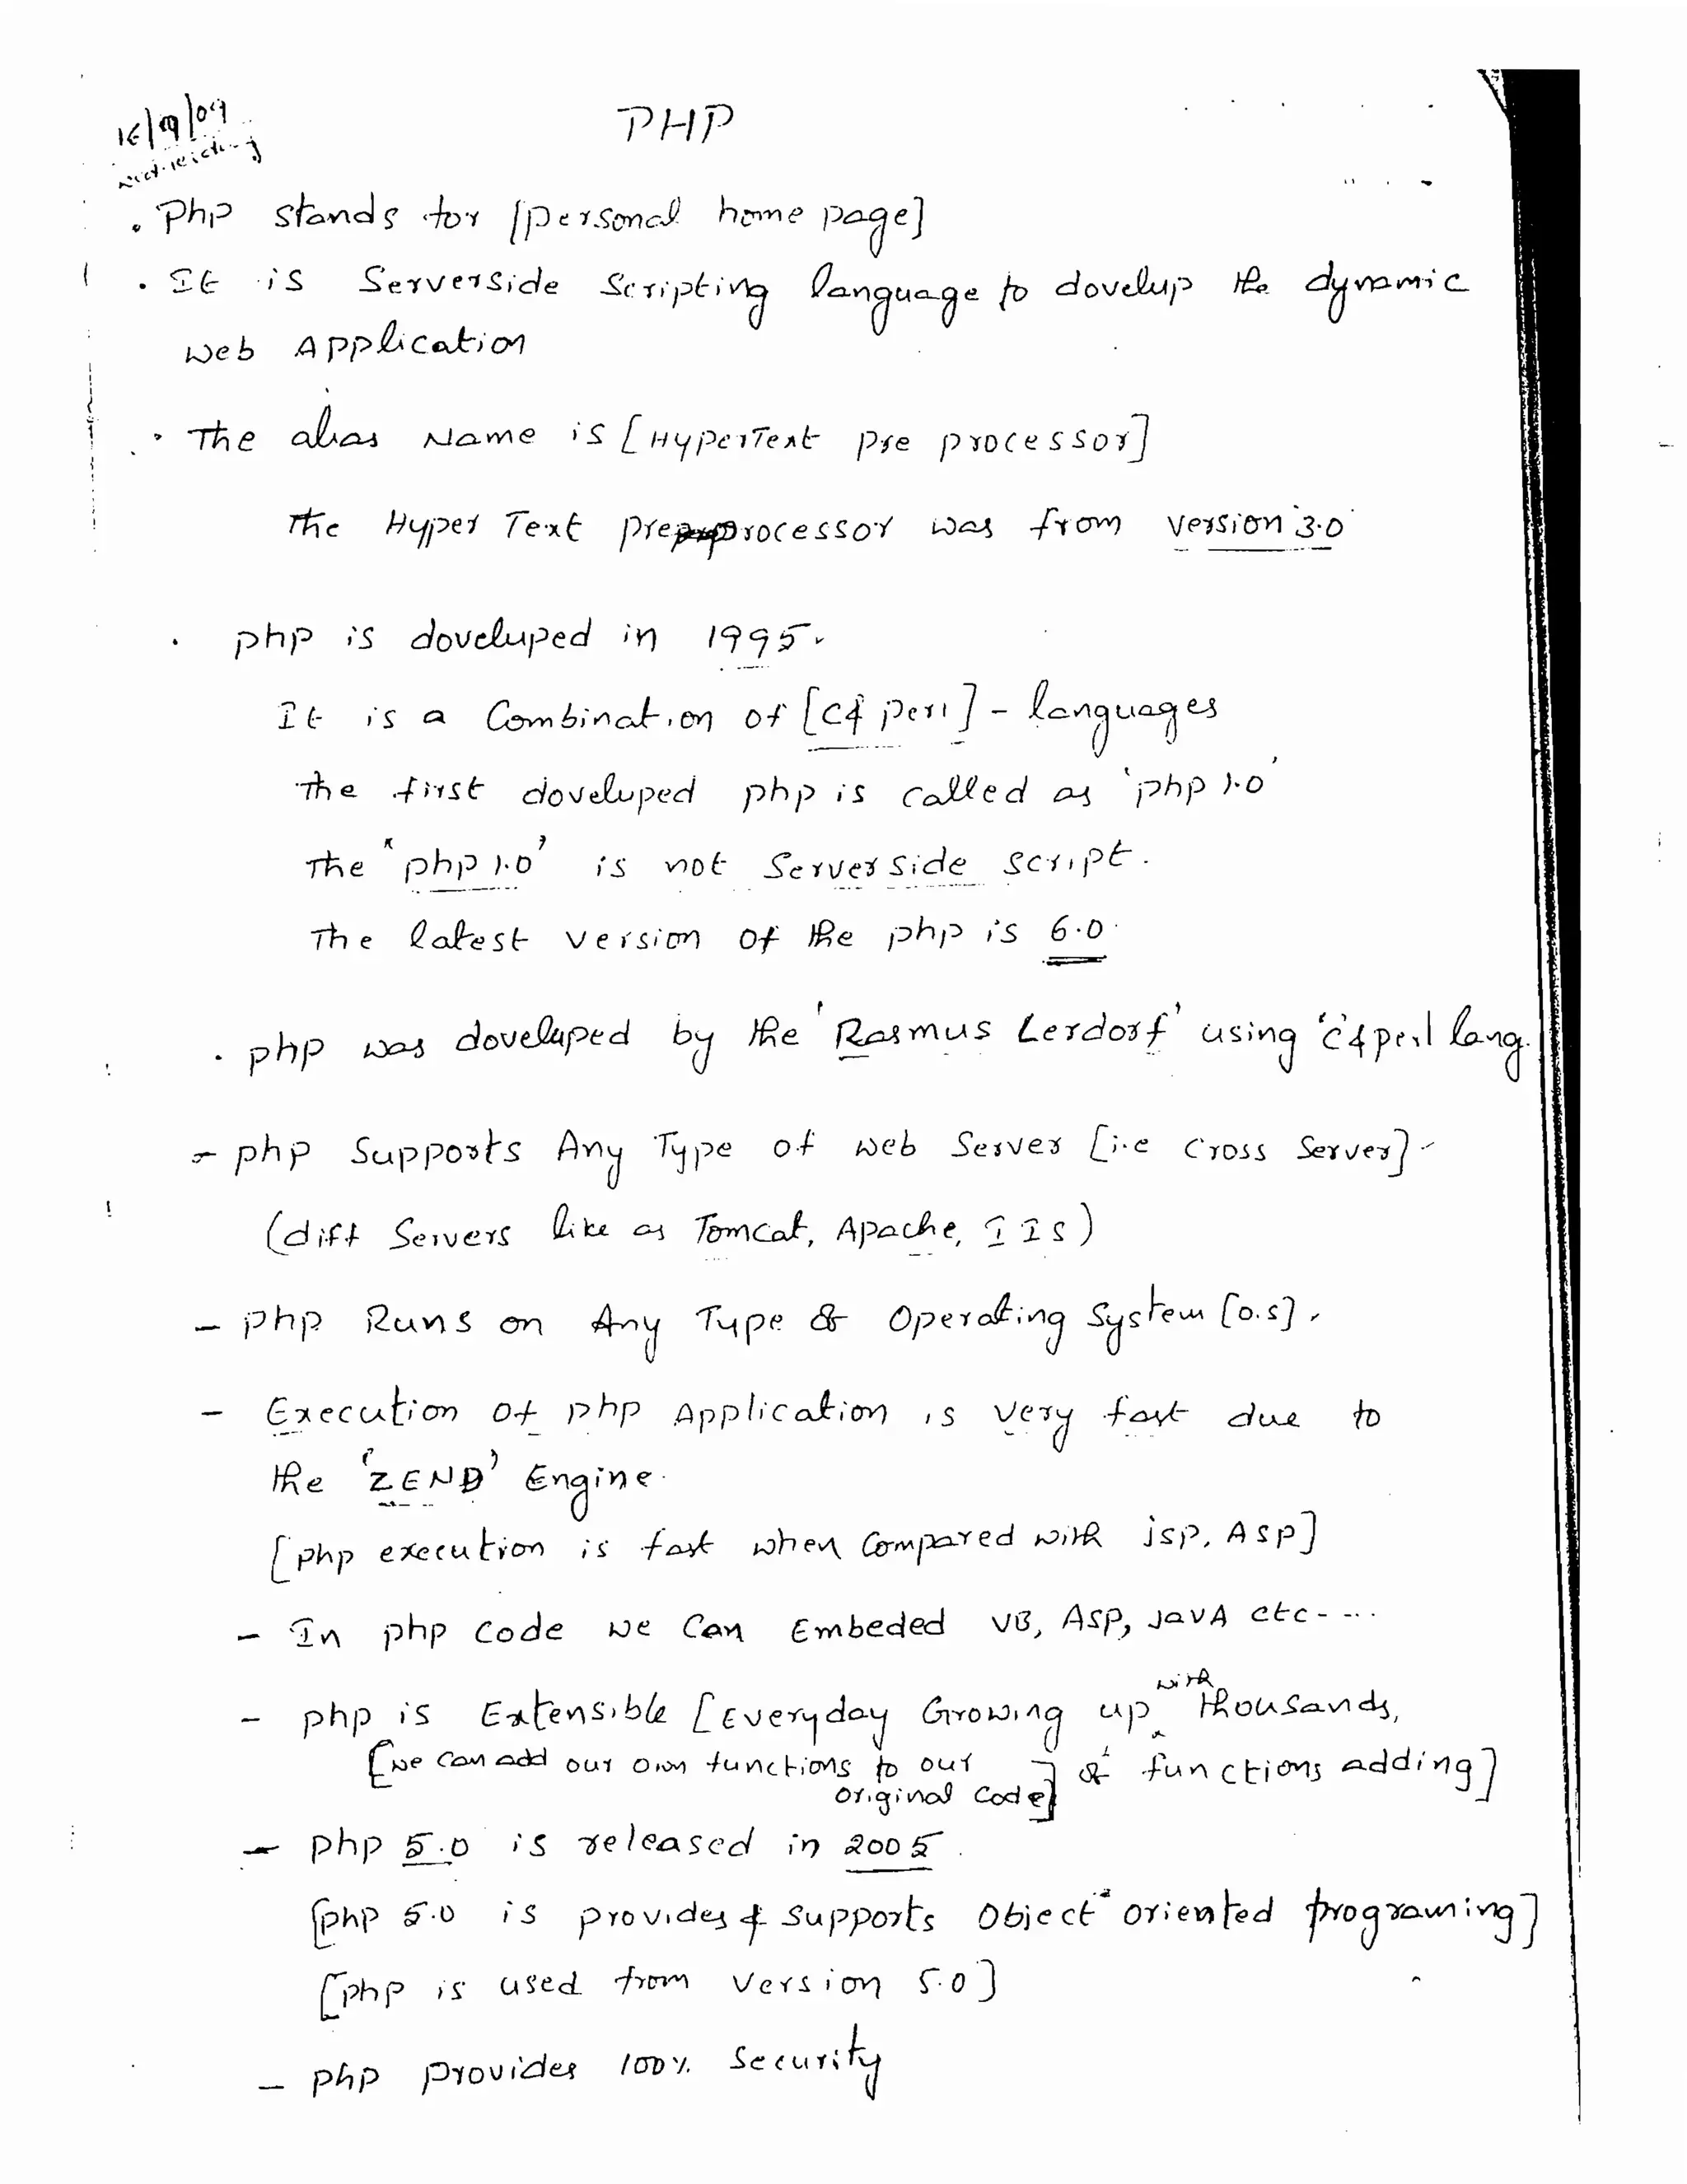 16/9/09
PHP
. Php stands for [personal home page]
. It is Serverside Scripting language to dovelup the dynamic
Web Application
. The alias Name is [HyperText Pre processor]
The Hyper Text preprocessor was from version 3.0
. php is doveluped in 1995.
It is a Combination of [C & perl] - languages
The first doveluped php is called as 'php 1.0'
The 'php 1.0' is not Serverside script.
The latest version of the php is 6.0.
. php was doveluped by the 'Rasmus Lerdorf' using 'c' & perl lang.
- php Supports Any Type of web Server [i.e Cross Server]
(diff Servers like as Tomcat, Apache, IIS)
- php Runs on Any Type of Operating System [O.S],
- Execution of php Application is very fast due to
the 'ZEND' Engine.
[php execution is fast when Compared with jsp, Asp]
- In php code we Can Embeded VB, ASP, JavA etc- --..
- php is Extensible [Everyday Growing up with thousands,
[we can add our own functions to our original Code] of functions adding]
- php 5.0 is released in 2005.
[php 5.0 is provides & supports Object oriented programing]
[php is used from version 5.0]
- php provides 100% Security